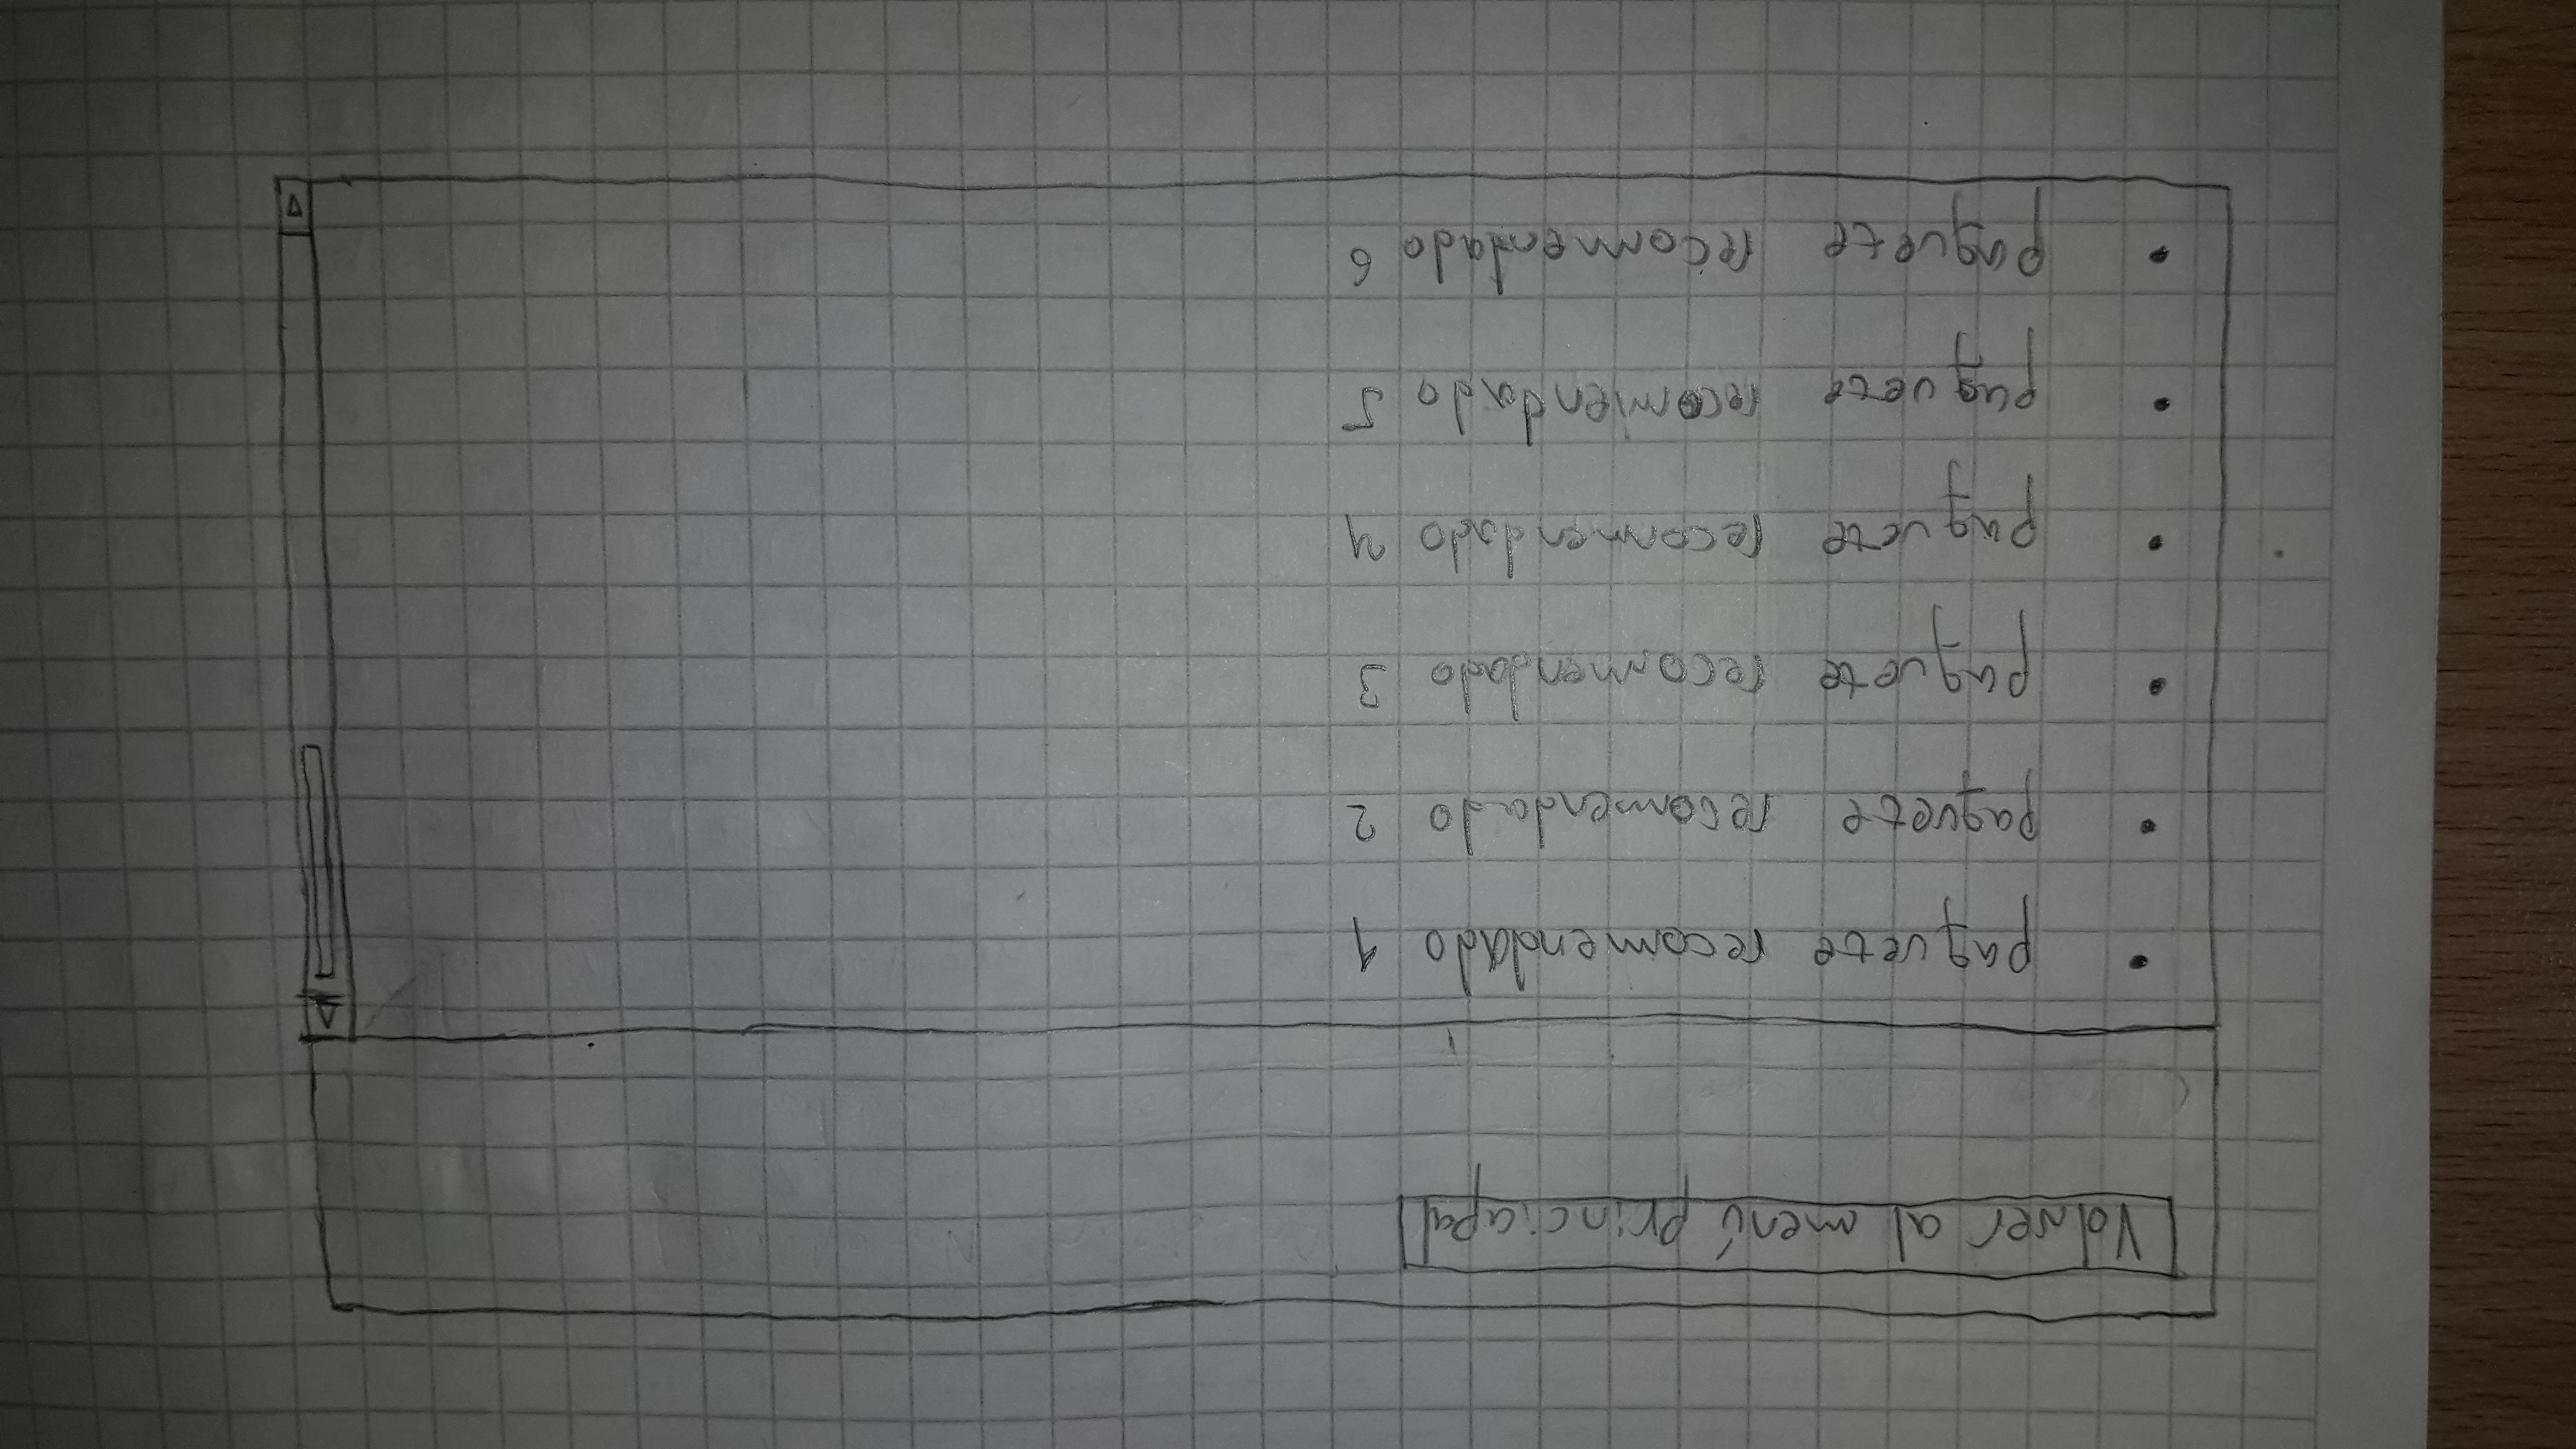 Volver al menú princiapal
• paquete recomendado 1
• paquete recomendado 2
• paquete recomendado 3
• paquete recomendado 4
• paquete recomendado 5
• paquete recomendado 6